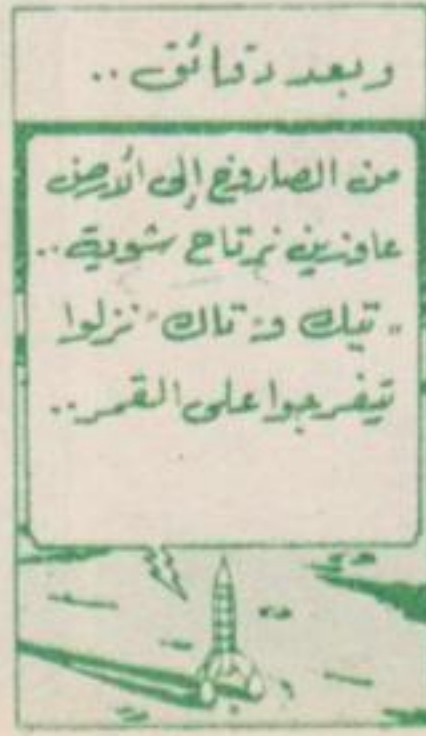 وبعد دقائق ..
من الصاروخ إلى الأرض
عاوزين نرتاح شوية ..
"تيك و" تاك" نزلوا
تيفرجوا على القمر ..